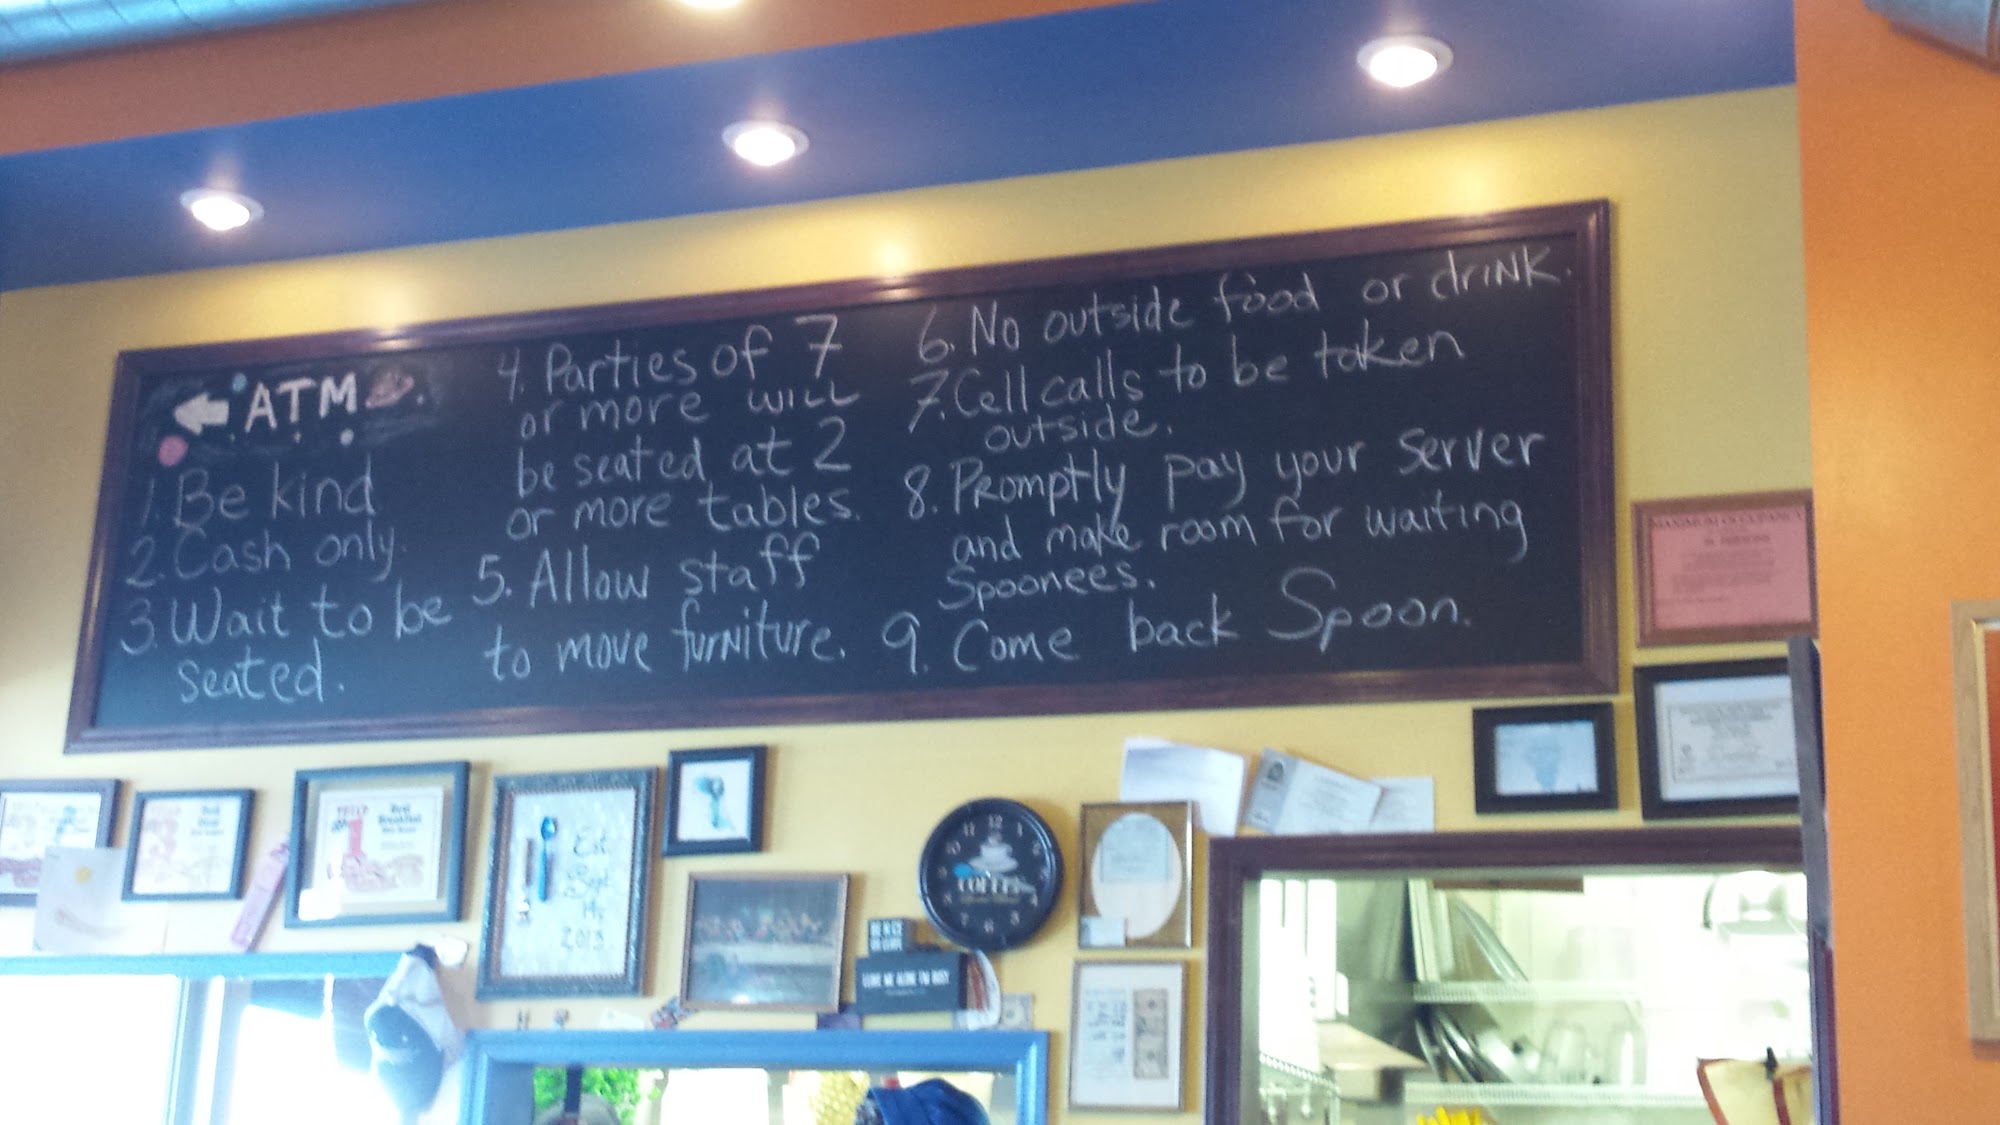 ATM
1. Be kind
2. Cash only.
3. Wait to be
seated.
4. Parties of 7
or more will
be seated at 2
or more tables.
5. Allow staff
to move furniture.
6. No outside food or drink.
7. Cell calls to be taken
outside.
8. Promptly pay your server
and make room for waiting
Spoonees.
9. Come back Spoon.
MAXIMUM OCCUPANCY
#1
Best
Breakfast
Est.
Sept.
2013
12
COFFEE
BE NICE
OR LEAVE
LEAVE ME ALONE I'M BUSY